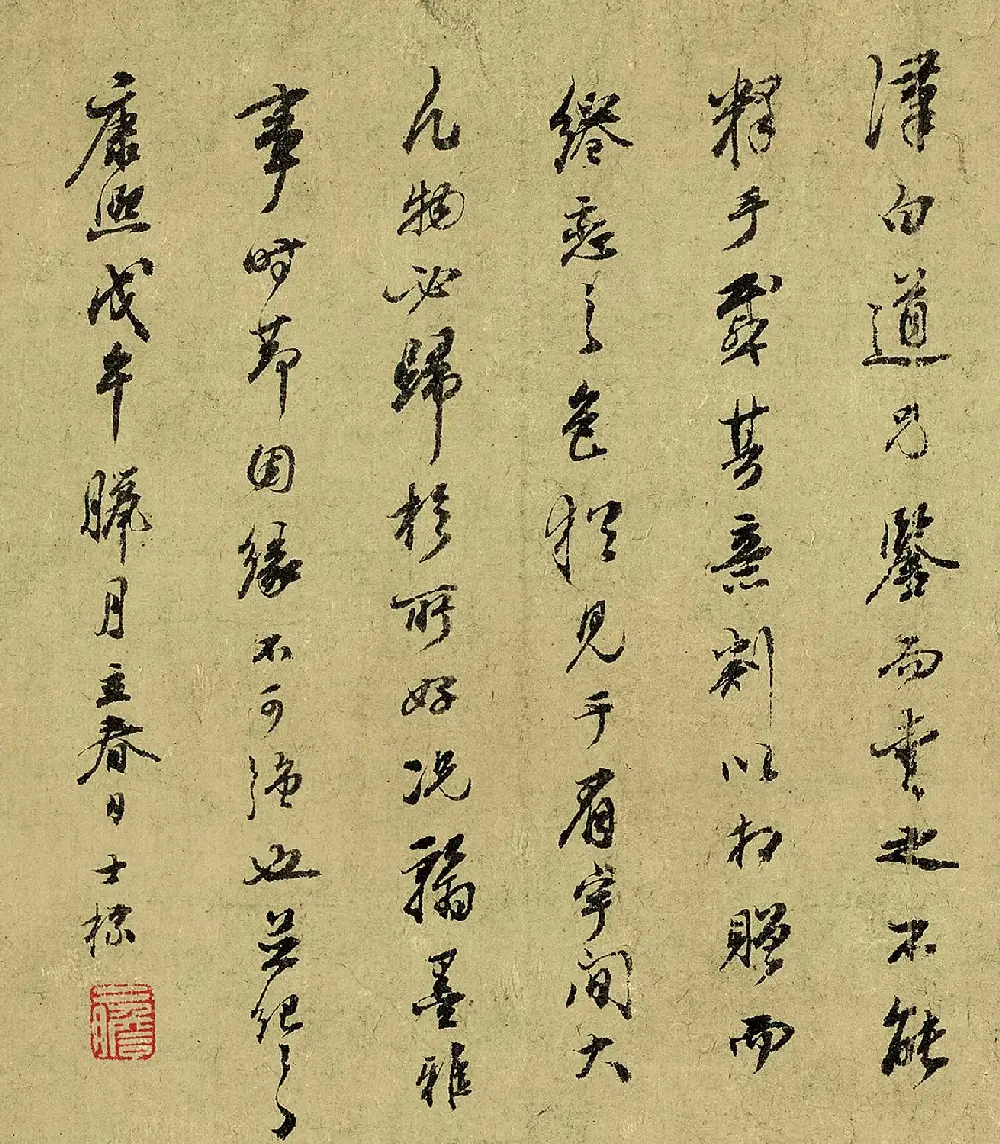 漢白道兄鑒而賞之不能
釋手感其意割以相贈而
綣戀之色猶見于眉宇間大
凡物必歸於所好況翰墨雅
事時節因緣不可強也並紀之
康熙戊午臘月立春日士標
二瞻